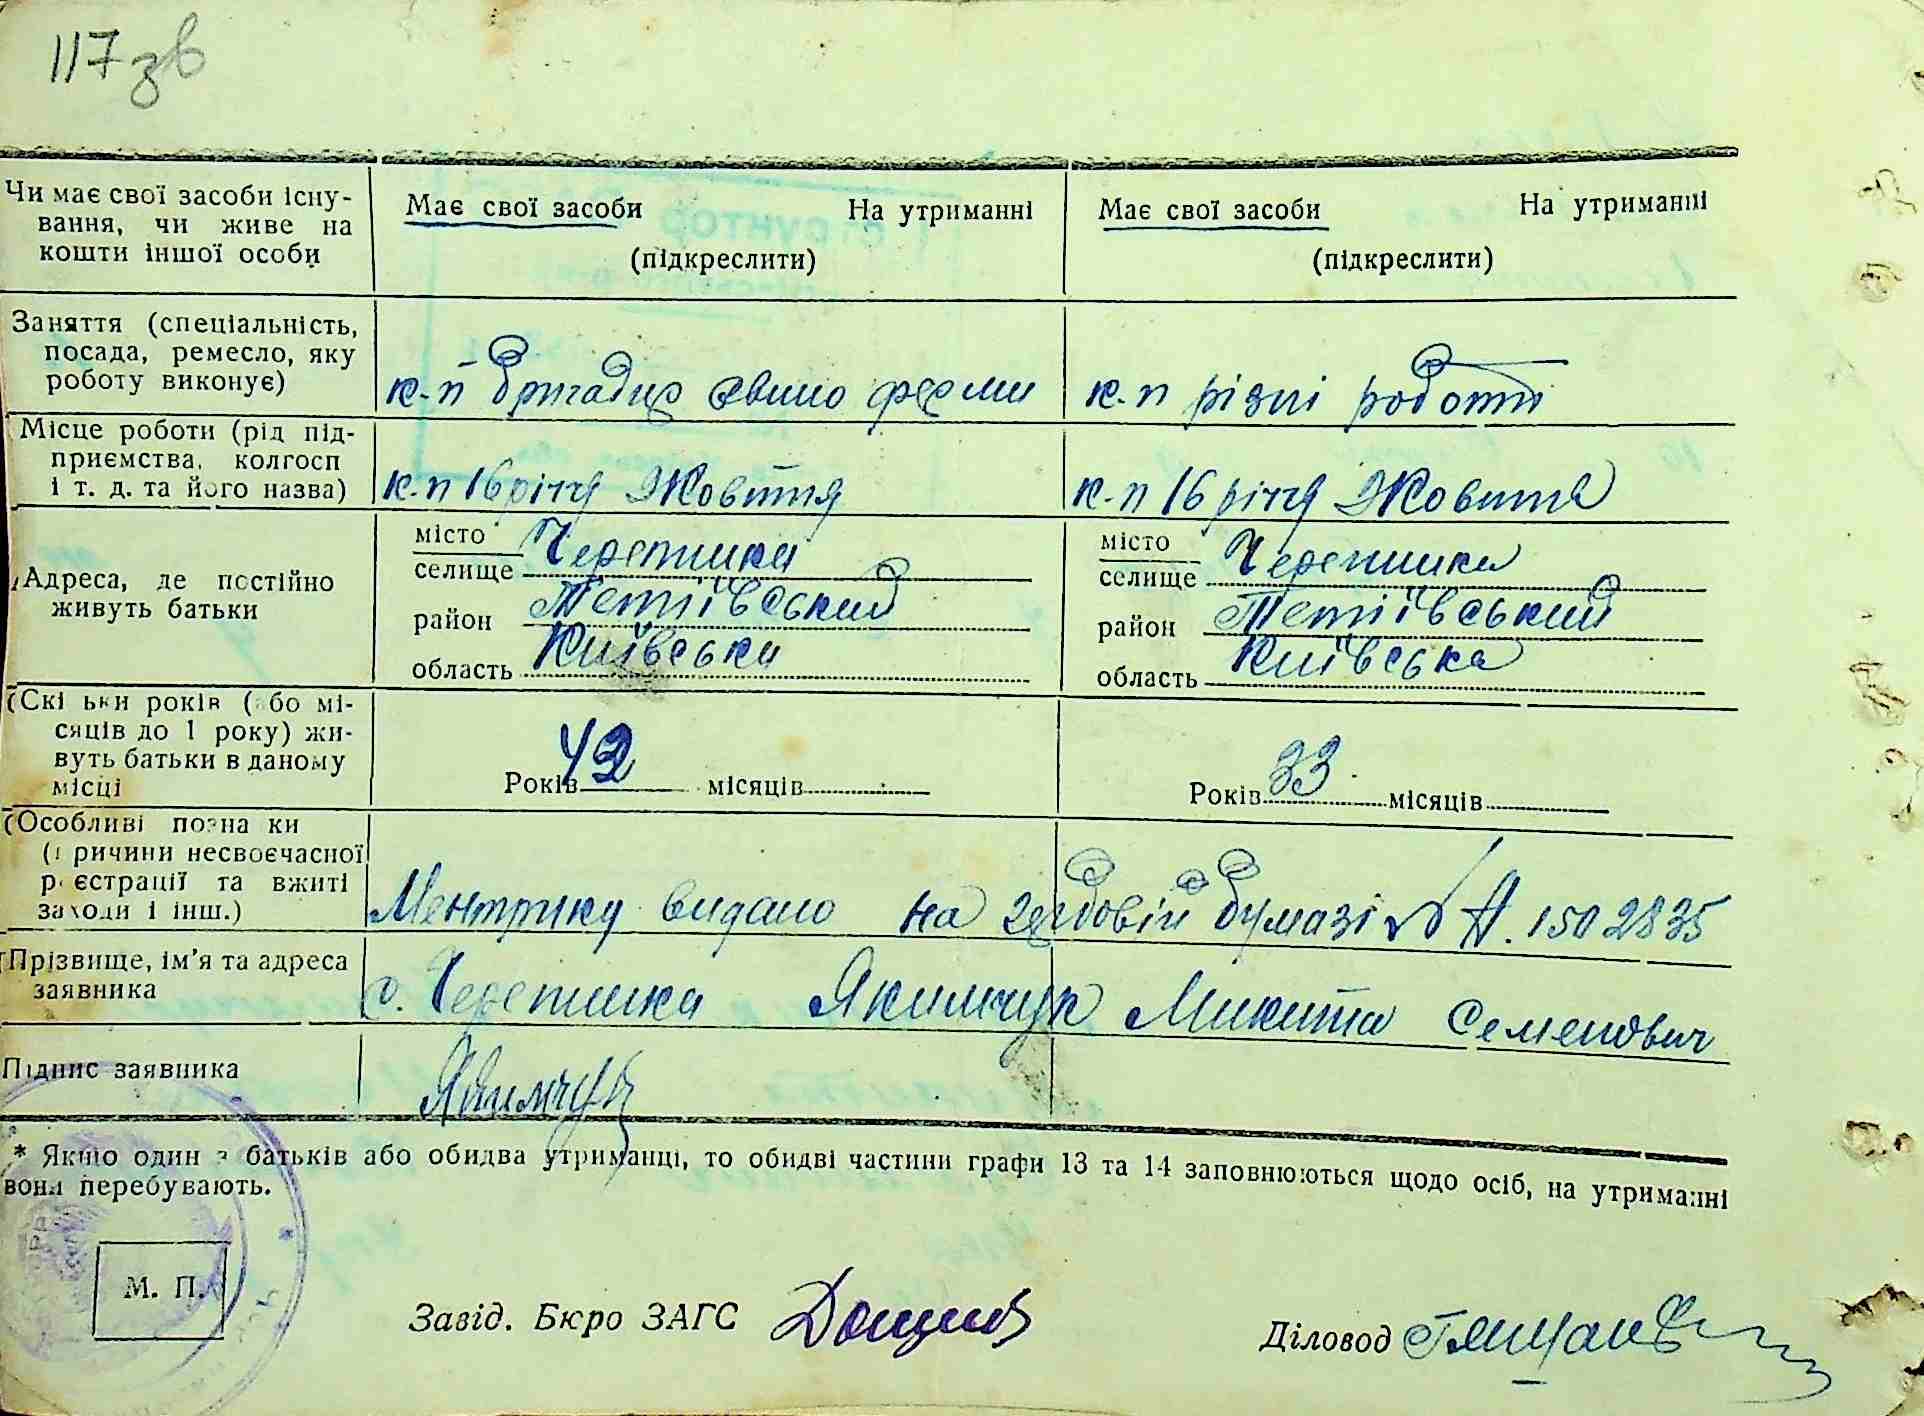 117 зв
Чи має свої засоби існу-
вання, чи живе на
кошти іншої особи
Має свої засоби На утриманні
(підкреслити)
Має свої засоби На утриманні
(підкреслити)
Заняття (спеціальність,
посада, ремесло, яку
роботу виконує)
к-п бригадир свино ферми
к-п різні роботи
Місце роботи (рід під-
приємства, колгосп
і т. д. та його назва)
к-п 16 річчя Жовтня
к-п 16 річчя Жовтня
Адреса, де постійно
живуть батьки
місто
селище Черепинка
район Тетіївський
область Київська
місто
селище Черепинка
район Тетіївський
область Київська
(Скі ьки років (або мі-
сяців до 1 року) жи-
вуть батьки в даному
місці
Років 42 місяців
Років 33 місяців
(Особливі позна ки
(причини несвоєчасної
реєстрації та вжиті
заходи і інш.)
Ментрику видано на гербовій бумазі № А. 1502835
Прізвище, ім'я та адреса
заявника
с. Черепинка Якимчук Микита Семенович
Підпис заявника
Якимчук
* Якщо один з батьків або обидва утриманці, то обидві частини графи 13 та 14 заповнюються щодо осіб, на утриманні
вони перебувають.
М. П.
Завід. Бюро ЗАГС
Діловод